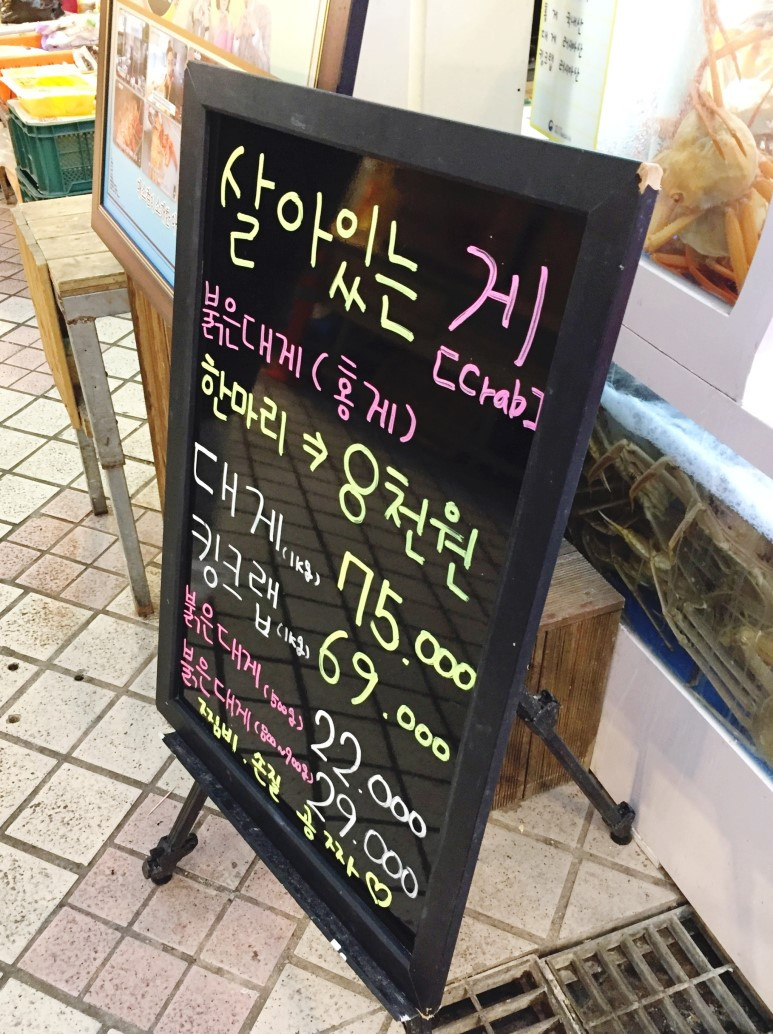 살아있는 게
[Crab]
붉은대게(홍게)
한마리 → 8천원
대게(1kg) 75.000
킹크랩(1kg) 69.000
붉은대게(500g) 22.000
붉은대게(800~900g) 29.000
찜비.손질 공짜♡
게 국내산
대게 러시아산
킹크랩 러시아산